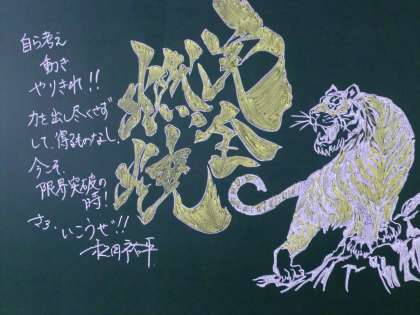 完全
燃焼
自ら考え
動き
やりきれ!!
力を出し尽くさず
して、得るものなし。
今こそ
限界突破の
時!
さぁ、いこうぜ!!